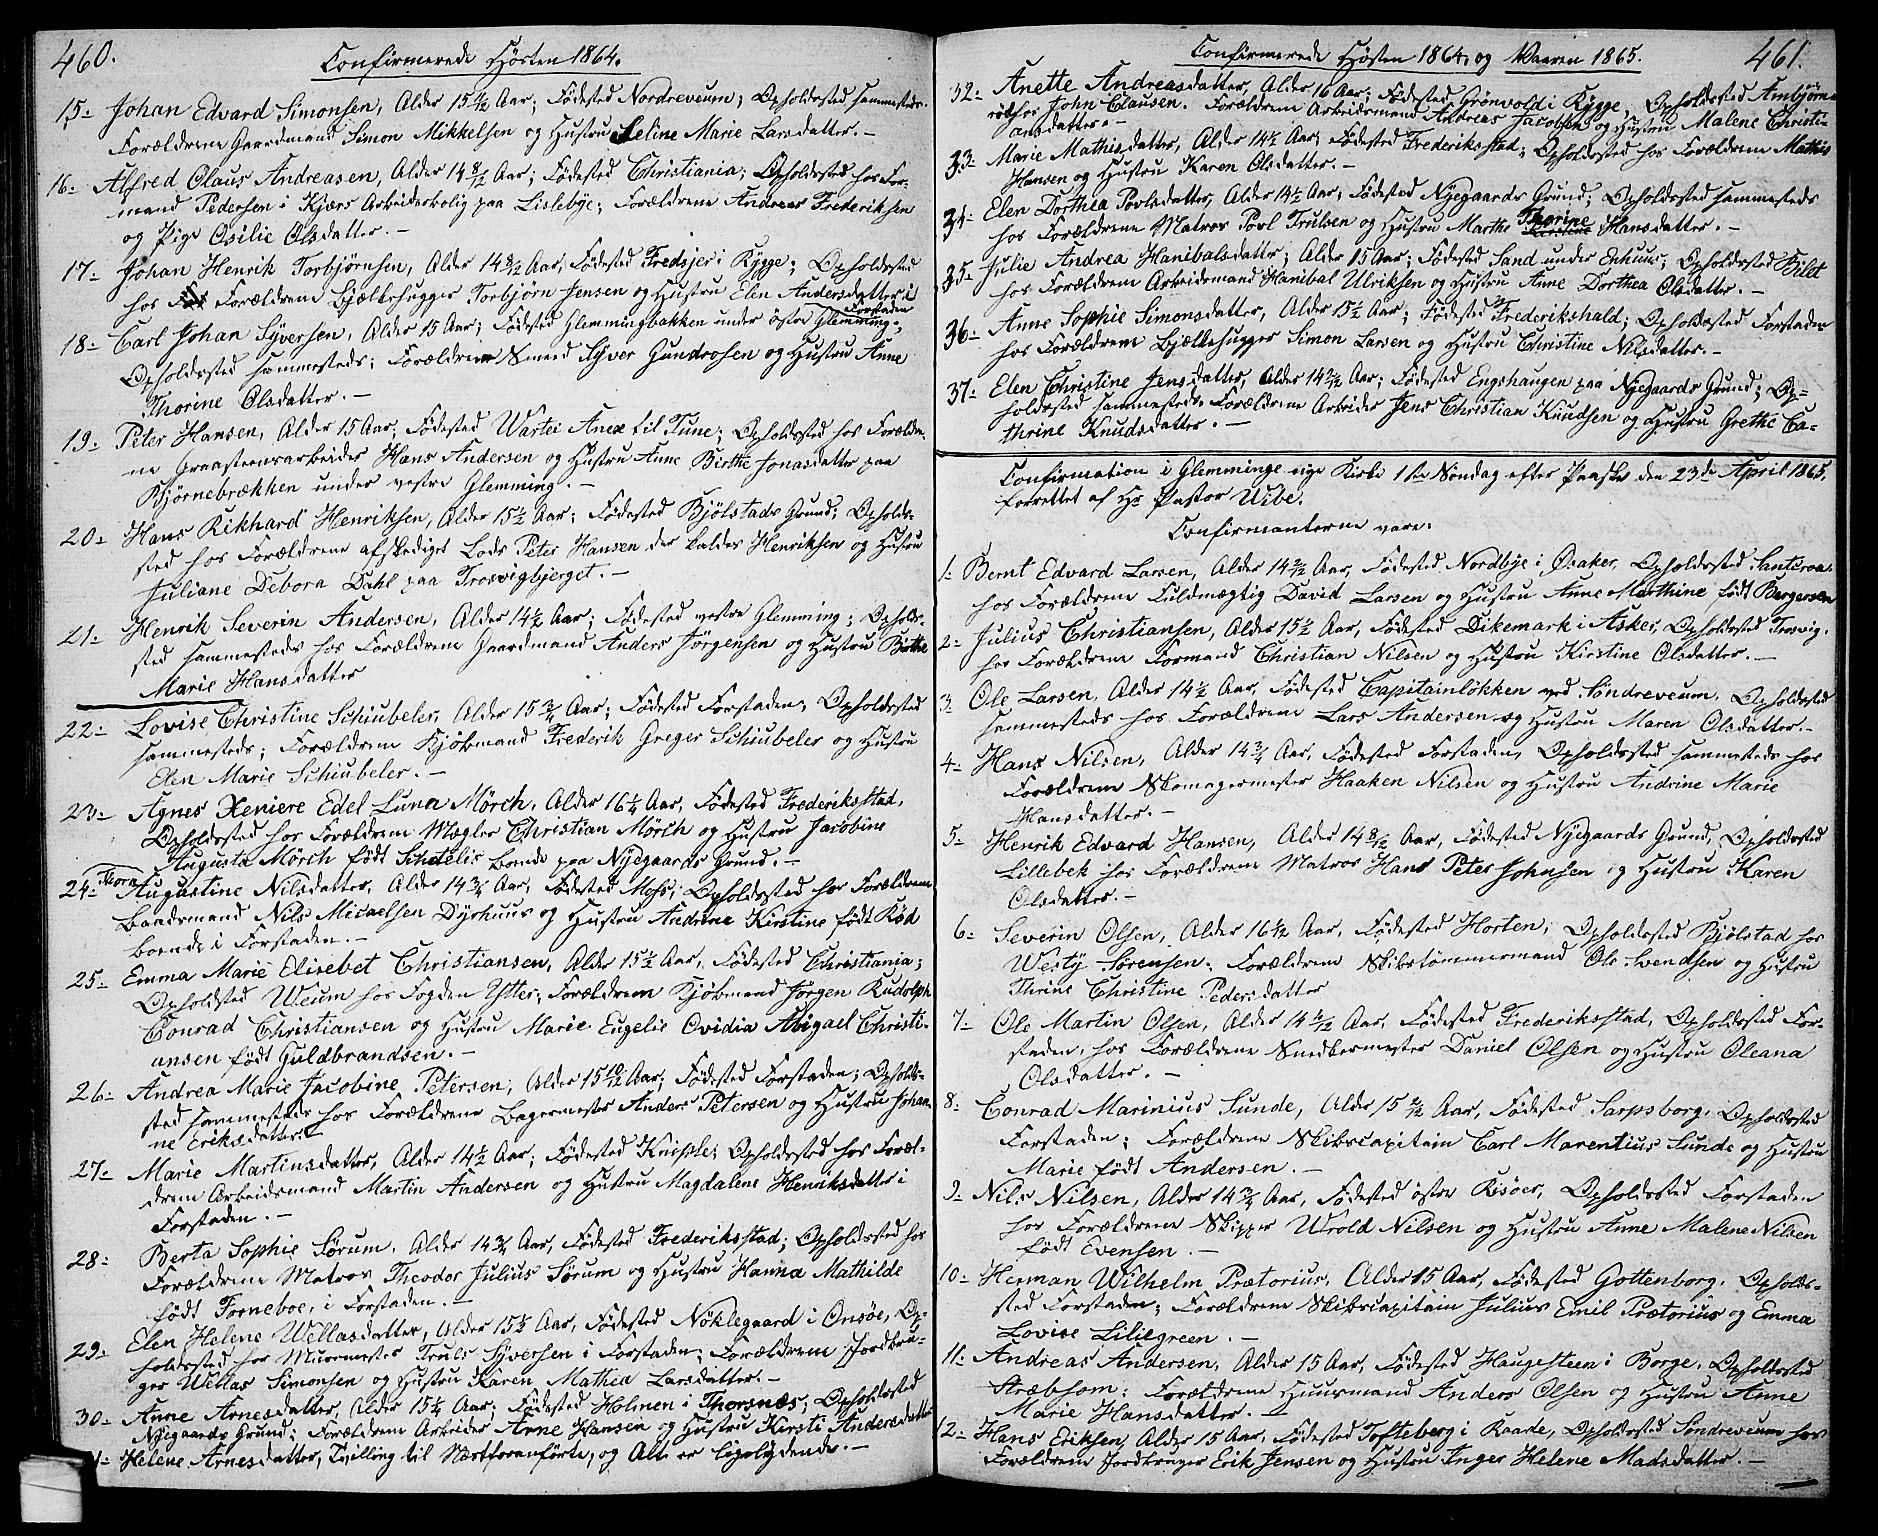 460.
Confirmerede Høsten 1864.
15. Johan Edvard Simonsen, Alder 15 Aar; Fødested Nordreveum; Opholdssted sammesteds.
Forældrene Gaardmand Simon Mikkelsen og Hustru Seline Marie Larsdatter. —
16. Alfred Olaus Andreasen, Alder 14 8/12 Aar; Fødested Christiania; Opholdssted hos For-
mand Pedersen i Kjærs Arbeiderbolig paa Lislebye; Forældrene Andreas Frederiksen
og Pige Osilie Olsdatter. —
17. Johan Henrik Torbjørnsen, Alder 14 8/12 Aar, Fødested Fredsjer i Rygge; Opholdssted
hos Forældrene Bjælkehugger Torbjørn Jensen og Hustru Elen Andersdatter i
Forstaden
18. Carl Johan Syversen, Alder 15 Aar; Fødested Glemmingbakken under østre Glemming;
Opholdssted sammesteds; Forældrene Smed Syver Gundrosen og Hustru Anne
Thorine Olsdatter. —
19. Peter Hansen, Alder 15 Aar; Fødested Wartei Anex til Tune; Opholdssted hos Forældre-
ne Graasteensarbeider Hans Andersen og Hustru Anne Birthe Jonasdatter paa
Bjørnebrækken under vestre Glemming. —
20. Hans Rikhard Henriksen, Alder 15 1/2 Aar; Fødested Bjølstads Grund; Opholds-
sted hos Forældrene afskediget Lods Peter Hansen der kaldes Henriksen og Hustru
Juliane Debora Dahl paa Trosvigbjerget. —
21. Henrik Severin Andersen, Alder 14 1/2 Aar; Fødested vestre Glemming; Opholds-
sted sammesteds hos Forældrene Gaardmand Anders Jørgensen og Hustru Birthe
Marie Hansdatter
22. Lovise Christine Schiubeler, Alder 15 3/4 Aar; Fødested Forstaden; Opholdssted
sammesteds; Forældrene Kjøbmand Frederik Greger Schiubeler og Hustru
Elen Marie Schiubeler. —
23. Agnes Xeniere Edel Luna Mørch, Alder 16 1/4 Aar, Fødested Frederiksstad,
Opholdssted hos Forældrene Mægler Christian Mørch og Hustru Jacobine
Augusta Mørch født Schetelis boende paa Nyegaards Grund. —
24. Thora Augustine Nilsdatter, Alder 14 3/4 Aar, Fødested Moss; Opholdssted hos Forældrene
Baadsmand Nils Micaelsen Dyrhuus og Hustru Andrine Kirstine født Kød
boende i Forstaden. —
25. Emma Marie Elisebet Christiansen, Alder 15 1/2 Aar, Fødested Christiania;
Opholdssted Weum hos Fogden Ytter; Forældrene Kjøbmand Jørgen Rudolph
Conrad Christiansen og Hustru Marie Eugelie Ovidia Abigael Christi-
ansen født Guldbrandsen. —
26. Andrea Marie Jacobine Petersen, Alder 15 10/12 Aar; Fødested Forstaden; Opholds-
sted sammesteds hos Forældrene Bagermester Anders Petersen og Hustru Johan-
ne Eriksdatter.
27. Marie Martinsdatter, Alder 14 1/2 Aar; Fødested Knipple; Opholdssted hos Foræl-
drene Arbeidsmand Martin Andersen og Hustru Magdalene Henriksdatter i
Forstaden. —
28. Berta Sophie Sørum, Alder 14 3/4 Aar, Fødested Frederiksstad; Opholdssted hos
Forældrene Matros Theodor Julius Sørum og Hustru Hanna Mathilde
født Forneboe, i Forstaden. —
29. Elen Helene Wellasdatter, Alder 15 Aar, Fødested Nøklegaard i Onsøe, Op-
holdssted hos Muurmester Truls Syversen i Forstaden; Forældrene Jordbru-
ger Wellas Simonsen og Hustru Karen Mathea Larsdatter. —
30. Anne Arnesdatter, Alder 15 1/4 Aar; Fødested Holmen i Thorsnæs; Opholdssted
Nyegaards Grund; Forældrene Arbeider Arne Hansen og Hustru Kirsti Andersdatter
Helene Arnesdatter, Tvilling til Næstforanførte, og Alt er ligelydende. —
461.
Confirmerede Høsten 1864, og Vaaren 1865.
32. Anette Andreasdatter, Alder 16 Aar; Fødested Grønvold i Rygge, Opholdssted Ambjørn-
rød hos John Clausen. Forældrene Arbeidsmand Andreas Jacobsen og Hustru Malene Christi-
ansdatter. —
33. Marie Mathisdatter, Alder 14 1/2 Aar; Fødested Frederiksstad; Opholdssted hos Forældrene Mathis
Hansen og Hustru Karen Olsdatter. —
34. Elen Dorthea Povlsdatter, Alder 14 1/2 Aar, Fødested Nyegaards Grund; Opholdssted sammesteds
hos Forældrene Matros Povl Trulsen og Hustru Marthe Thorine Hansdatter. —
35. Julie Andrea Hanibalsdatter; Alder 15 Aar; Fødested Sand under Enhuus; Opholdssted Bilet
hos Forældrene Arbeidsmand Hanibal Ulriksen og Hustru Anne Dorthea Olsdatter. —
36. Anne Sophie Simonsdatter, Alder 15 1/2 Aar; Fødested Frederikshald; Opholdssted Forstaden
hos Forældrene Bjælkehugger Simon Larsen og Hustru Christine Nilsdatter. —
37. Elen Christine Jensdatter, Alder 14 Aar; Fødested Engshaugen paa Nyegaards Grund; Op-
holdssted sammesteds Forældrene Arbeider Jens Christian Knudsen og Hustru Grethe Ca-
thrine Knudsdatter. —
Confirmation i Glemminge nye Kirke 1ste Søndag efter Paaske den 23de April 1865,
forrettet af Hr Pastor Wibe.
Confirmanterne vare:
1. Bernt Edvard Larsen, Alder 14 Aar, Fødested Nordbye i Øsaker, Opholdssted
hos Forældrene Fuldmægtig David Larsen og Hustru Anne Marthine født Borgersen
2. Julius Christiansen, Alder 15 1/2 Aar, Fødested Dikemark i Asker, Opholdssted Trosvig.
hos Forældrene Formand Christian Nilsen og Hustru Kirstine Olsdatter. —
3. Ole Larsen, Alder 14 1/2 Aar, Fødested Capitainløkken ved Søndreveum, Opholdssted
sammesteds hos Forældrene Lars Andersen og Hustru Maren Olsdatter. —
4. Hans Nilsen, Alder 14 3/4 Aar, Fødested Forstaden, Opholdssted sammesteds hos
Forældrene Skomagermester Haaken Nilsen og Hustru Andrine Marie
Hansdatter. —
5. Henrik Edvard Hansen, Alder 14 8/12 Aar, Fødested Nyegaards Grund, Opholdssted
Lillebek hos Forældrene Matros Hans Peter Johnsen og Hustru Karen
Olsdatter. —
6. Severin Olsen, Alder 16 Aar, Fødested Horten; Opholdssted Bjølstad hos
Westy Sørensen; Forældrene Skibstømmermand Ole Svendsen og Hustru
Thrine Christine Pedersdatter
7. Ole Martin Olsen, Alder 14 Aar, Fødested Frederiksstad, Opholdssted For-
staden, hos Forældrene Snedkermester Daniel Olsen og Hustru Oleana
Olsdatter. —
8. Conrad Marinius Sunde, Alder 15 Aar, Fødested Sarpsborg, Opholdssted
Forstaden; Forældrene Skibscapitain Carl Marentius Sunde og Hustru
Marie født Andersen. —
9. Nils Nilsen, Alder 14 3/4 Aar, Fødested østre Risøer, Opholdssted Forstaden
hos Forældrene Skipper Wrold Nilsen og Hustru Anne Malene Nilsen
født Evensen. —
10. Herman Wilhelm Prætorius, Alder 15 Aar, Fødested Gottenborg, Opholds-
sted Forstaden; Forældrene Skibscapitain Julius Emil Prætorius og Emma
Lovise Liliegreen. —
11. Andreas Andersen, Alder 15 Aar, Fødested Haugesteen i Borge, Opholdssted
Stræbsom; Forældrene Huusmand Anders Olsen og Hustru Anne
Marie Hansdatter. —
12. Hans Eriksen, Alder 15 Aar, Fødested Tofteberg i Raade, Opholdssted Søndreveum hos
Forældrene Jordbruger Erik Jensen og Hustru Inger Helene Madsdatter. —